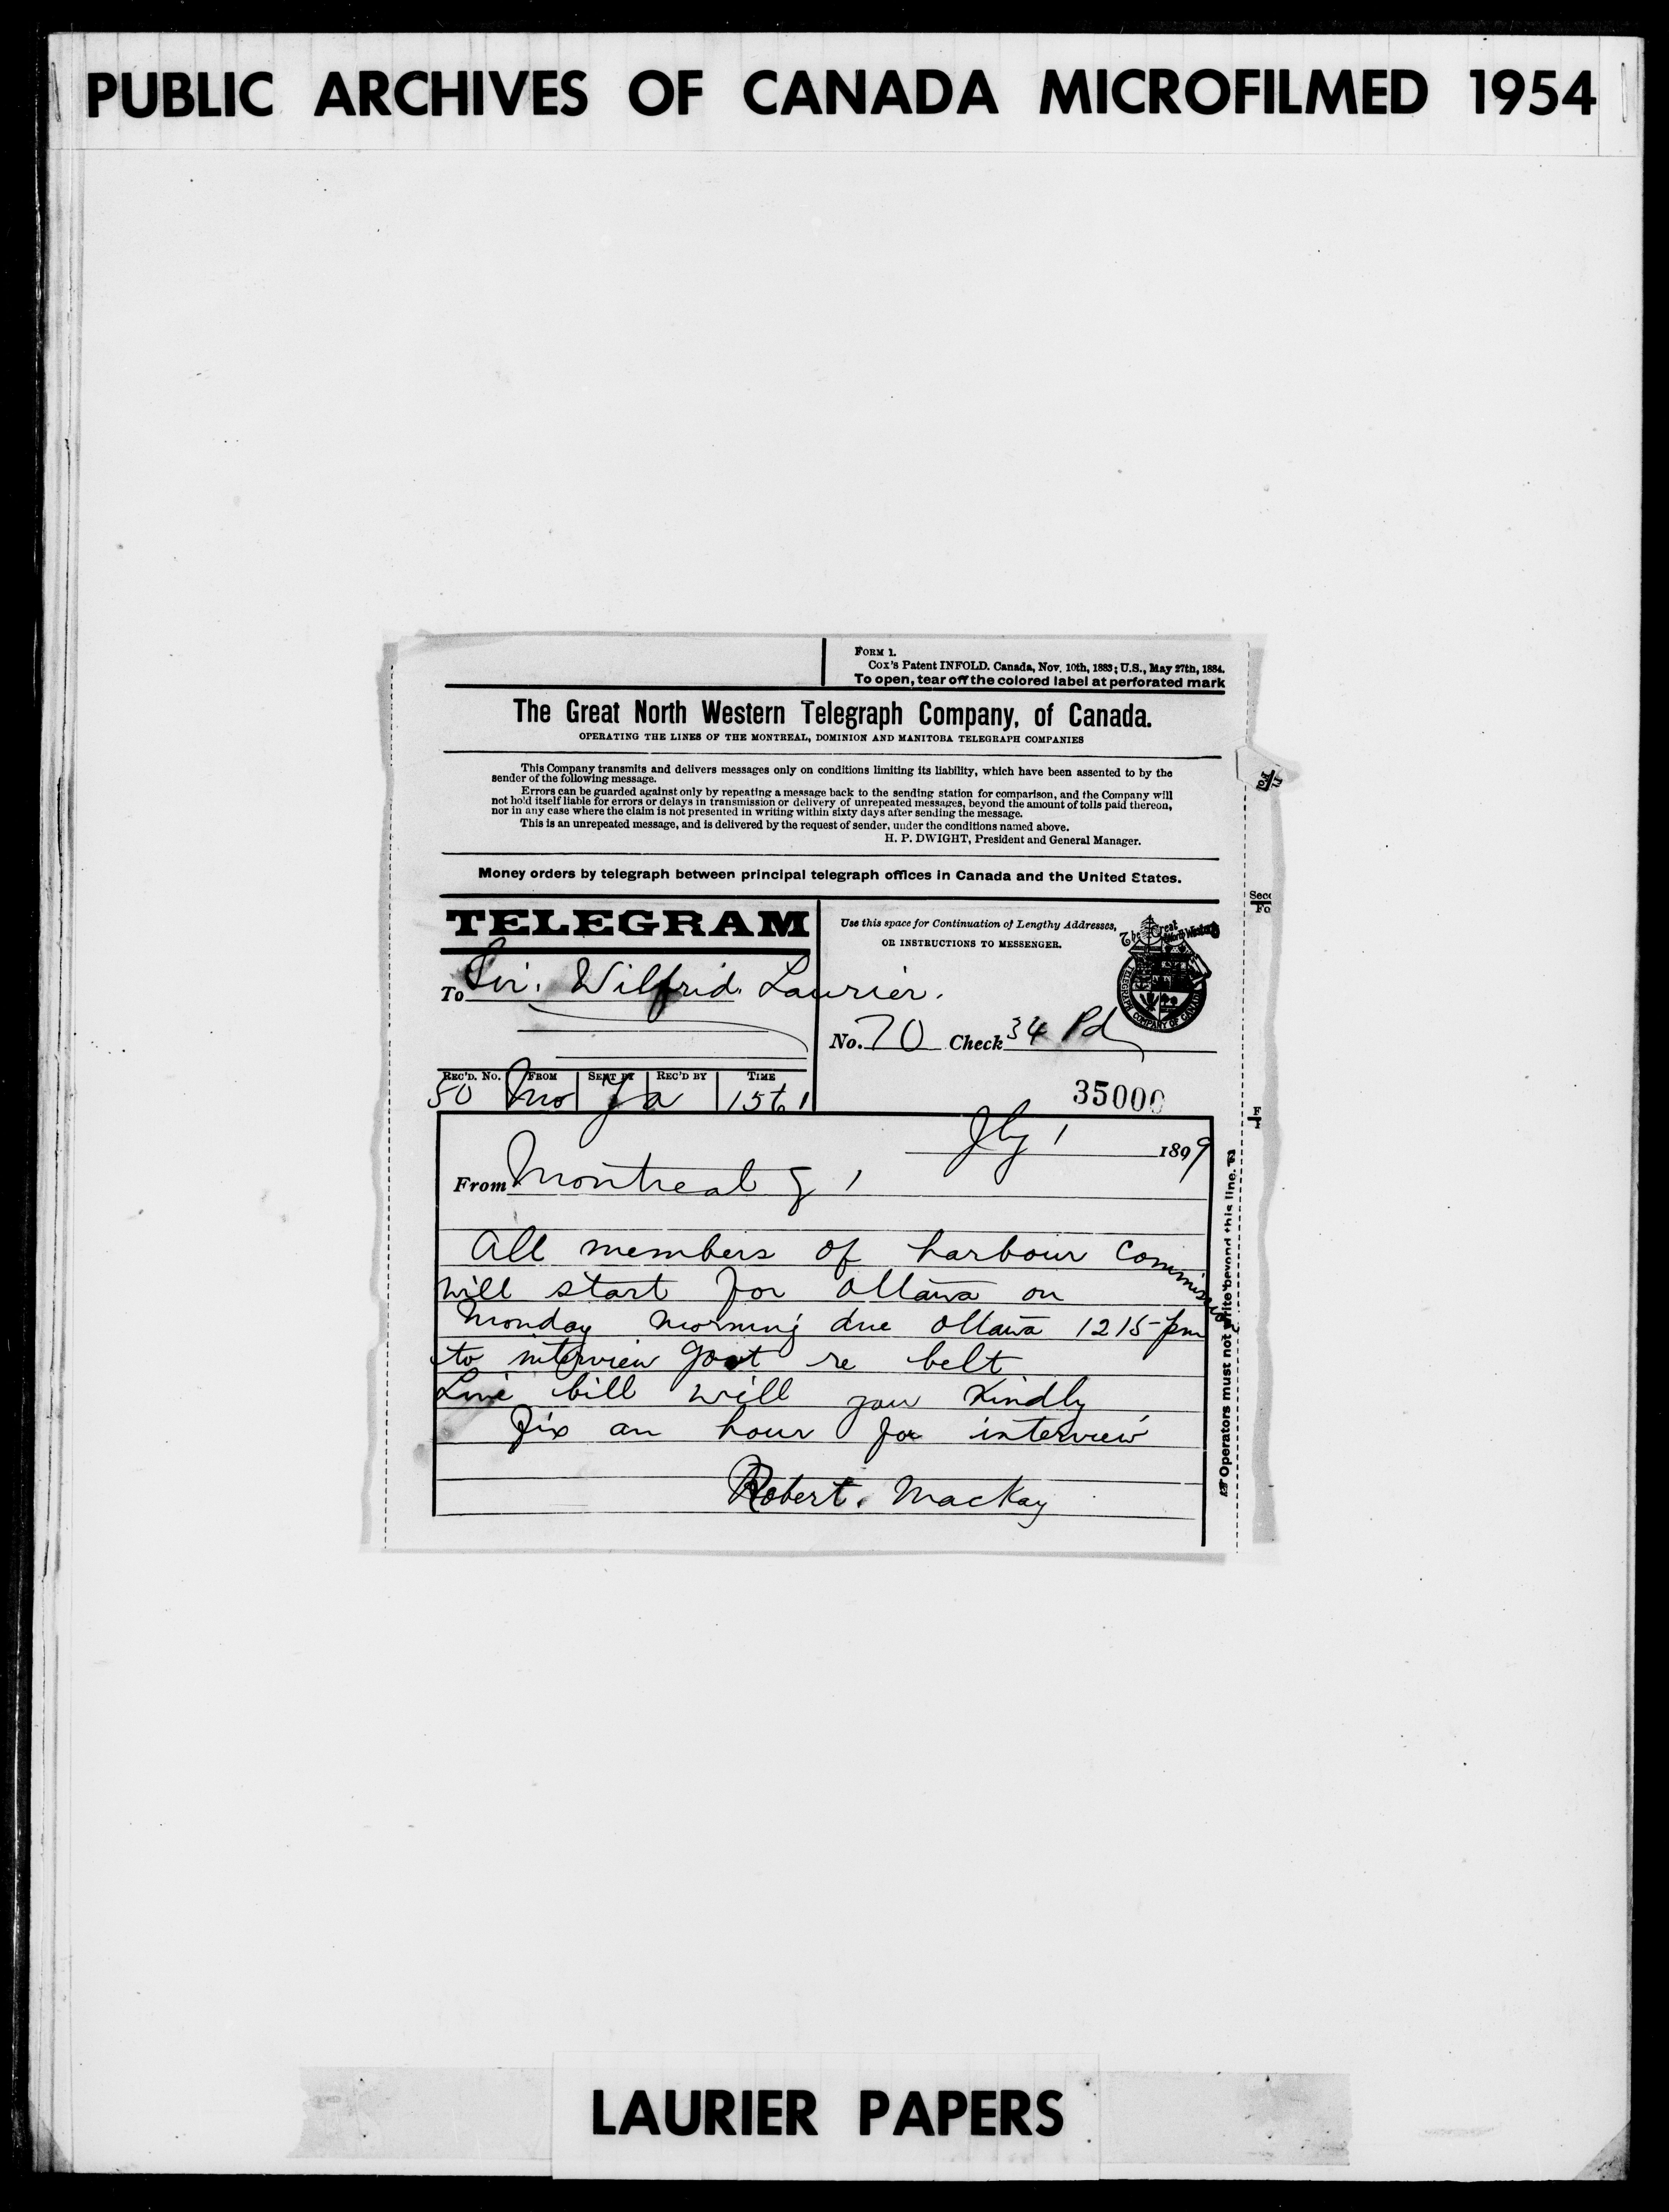 PUBLIC ARCHIVES OF CANADA MICROFILMED 1954
FORM 1.
Cox's Patent INFOLD. Canada, Nov. 10th, 1883; U.S., May 27th, 1884.
To open, tear off the colored label at perforated mark
The Great North Western Telegraph Company, of Canada.
OPERATING THE LINES OF THE MONTREAL, DOMINION AND MANITOBA TELEGRAPH COMPANIES
This Company transmits and delivers messages only on conditions limiting its liability, which have been assented to by the
sender of the following message.
Errors can be guarded against only by repeating a message back to the sending station for comparison, and the Company will
not hold itself liable for errors or delays in transmission or delivery of unrepeated messages, beyond the amount of tolls paid thereon,
nor in any case where the claim is not presented in writing within sixty days after sending the message.
This is an unrepeated message, and is delivered by the request of sender, under the conditions named above.
H. P. DWIGHT, President and General Manager.
Money orders by telegraph between principal telegraph offices in Canada and the United States.
TELEGRAM
Use this space for Continuation of Lengthy Addresses,
OR INSTRUCTIONS TO MESSENGER.
The Great North Western
TELEGRAPH COMPANY OF CANADA
To Sir. Wilfrid. Laurier.
No. 70 Check 34 Pd
REC'D. NO. FROM SENT BY REC'D BY TIME
50 Mo
35000
Jly 1 1899
From Montreal 1
All members of harbour Commission
will start for Ottawa on
Monday morning due Ottawa 12 15 pm
to interview govt re belt
Line bill will you kindly
fix an hour for interview
Robert. Mackay
Operators must not write beyond this line.
LAURIER PAPERS